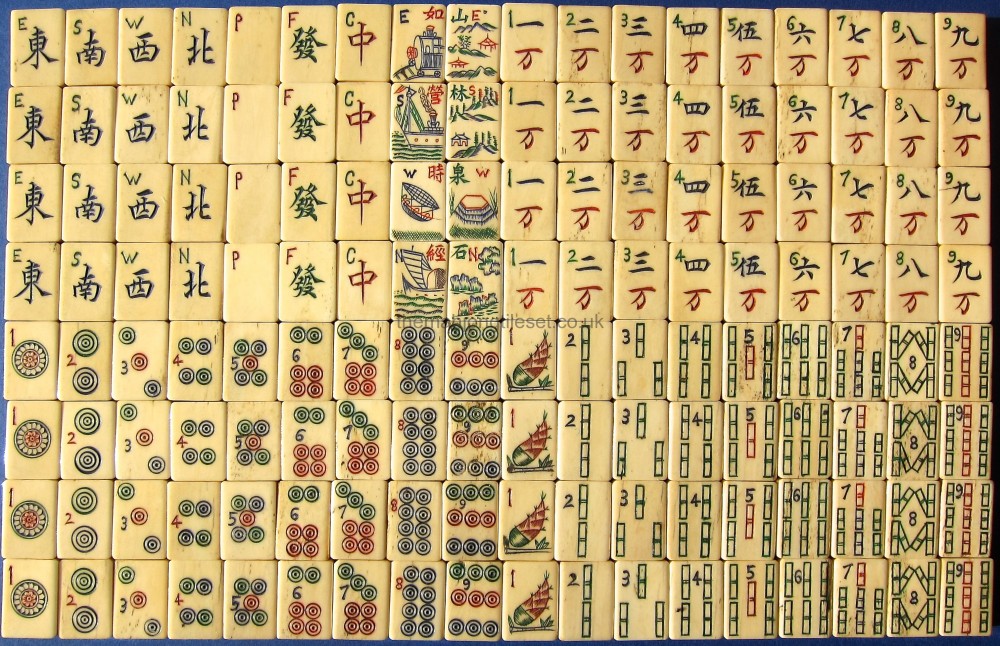 E 東 S 南 W 西 N 北 P F 發 C 中 E 如 山 E 1 一 万 2 二 万 3 三 万 4 四 万 5 伍 万 6 六 万 7 七 万 8 八 万 9 九 万
E 東 S 南 W 西 N 北 P F 發 C 中 S 營 林 S 1 一 万 2 二 万 3 三 万 4 四 万 5 伍 万 6 六 万 7 七 万 8 八 万 9 九 万
E 東 S 南 W 西 N 北 P F 發 C 中 W 時 泉 W 1 一 万 2 二 万 3 三 万 4 四 万 5 伍 万 6 六 万 7 七 万 8 八 万 9 九 万
E 東 S 南 W 西 N 北 P F 發 C 中 N 經 石 N 1 一 万 2 二 万 3 三 万 4 四 万 5 伍 万 6 六 万 7 七 万 8 八 万 9 九 万
themahjongtileset.co.uk
1 2 3 4 5 6 7 8 9 1 2 3 4 5 6 7 8 9
1 2 3 4 5 6 7 8 9 1 2 3 4 5 6 7 8 9
1 2 3 4 5 6 7 8 9 1 2 3 4 5 6 7 8 9
1 2 3 4 5 6 7 8 9 1 2 3 4 5 6 7 8 9